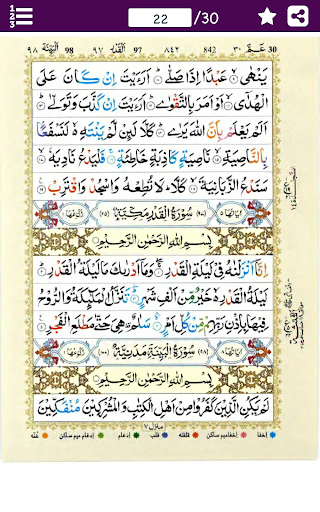 22 /30
٩٨ البينة 98 ٩٧ القدر 97 ٨٤٢ 842 ٣٠ عم 30
يَنْهٰىۙ عَبْدًا اِذَا صَلّٰىؕ اَرَءَيْتَ اِنْ كَانَ عَلَى
الْهُدٰٓىۙ اَوْ اَمَرَ بِالتَّقْوٰىؕ اَرَءَيْتَ اِنْ كَذَّبَ وَتَوَلّٰىؕ
اَلَمْ يَعْلَمْ بِاَنَّ اللّٰهَ يَرٰىؕ كَلَّا لَئِنْ لَّمْ يَنْتَهِ ۙ لَنَسْفَعًۢا
بِالنَّاصِيَةِۙ نَاصِيَةٍ كَاذِبَةٍ خَاطِئَةٍۚ فَلْيَدْعُ نَادِيَهٗۙ
سَنَدْعُ الزَّبَانِيَةَۙ كَلَّاؕ لَا تُطِعْهُ وَاسْجُدْ وَاقْتَرِبْ
اٰيَاتُهَا ٥ (٩٧) سُوْرَةُ الْقَدْرِ مَكِّيَّةٌ (٢٥) رُكُوْعُهَا ١
بِسْمِ اللّٰهِ الرَّحْمٰنِ الرَّحِيْمِ
اِنَّاۤ اَنْزَلْنٰهُ فِيْ لَيْلَةِ الْقَدْرِۚ وَمَاۤ اَدْرٰىكَ مَا لَيْلَةُ الْقَدْرِؕ
لَيْلَةُ الْقَدْرِ ۙ خَيْرٌ مِّنْ اَلْفِ شَهْرٍؕ تَنَزَّلُ الْمَلٰٓئِكَةُ وَالرُّوْحُ
فِيْهَا بِاِذْنِ رَبِّهِمْ ۚ مِنْ كُلِّ اَمْرٍۙ سَلٰمٌ ۛ هِيَ حَتّٰى مَطْلَعِ الْفَجْرِ
اٰيَاتُهَا ٨ (٩٨) سُوْرَةُ الْبَيِّنَةِ مَدَنِيَّةٌ (١٠٠) رُكُوْعُهَا ١
بِسْمِ اللّٰهِ الرَّحْمٰنِ الرَّحِيْمِ
لَمْ يَكُنِ الَّذِيْنَ كَفَرُوْا مِنْ اَهْلِ الْكِتٰبِ وَالْمُشْرِكِيْنَ مُنْفَكِّيْنَ
منزل ٧
اخفا اخفا میم ساکن قلقله قلب ادغام ادغام میم ساکن غنّه